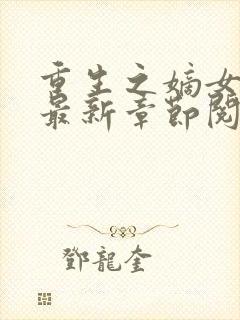 重生之嫡女
最新章節閱
鄧龍奎